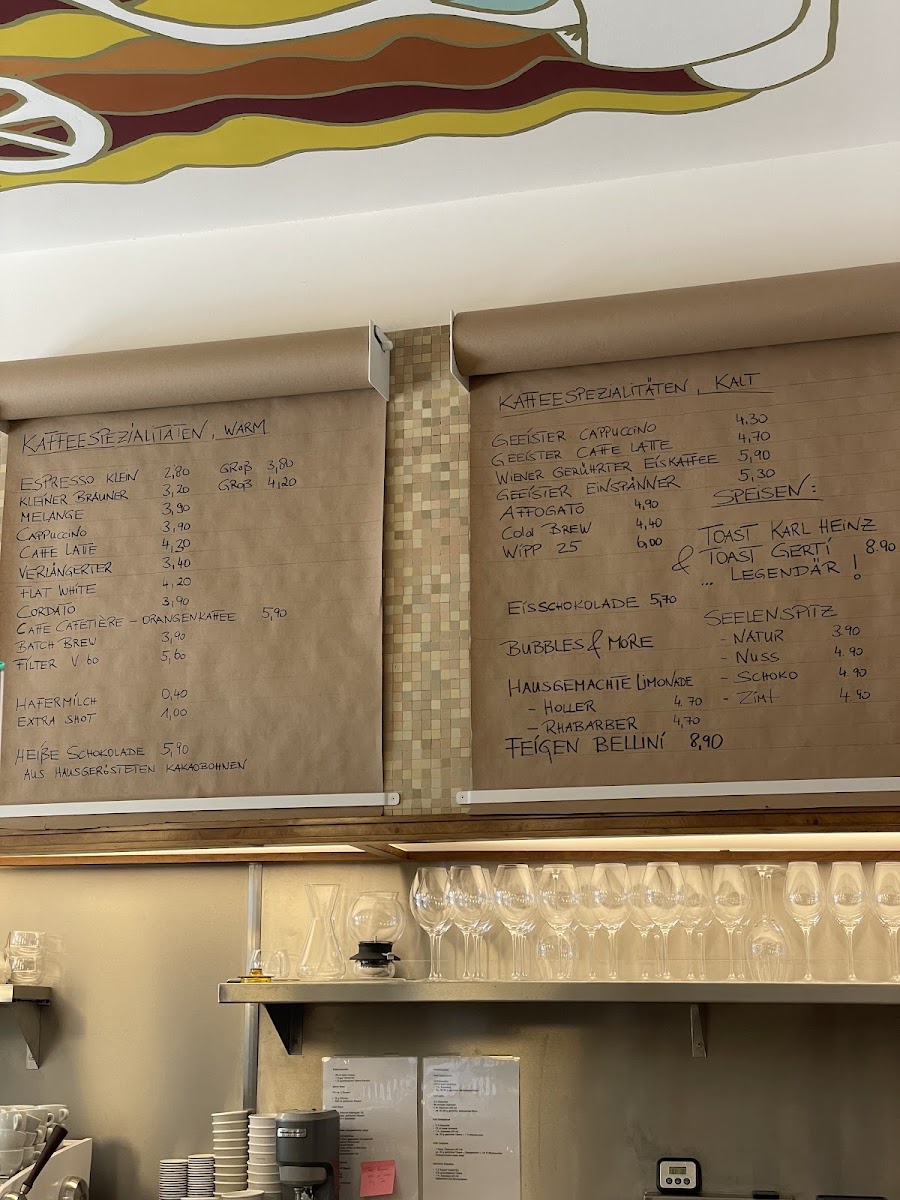 KAFFEESPEZIALITÄTEN, WARM
ESPRESSO KLEIN 2,80 GROß 3,80
KLEINER BRAUNER 3,20 GROß 4,20
MELANGE 3,90
CAPPUCCINO 3,90
CAFFE LATTE 4,20
VERLÄNGERTER 3,40
FLAT WHITE 4,20
CORDATO 3,90
CAFFE CAFETIÈRE - ORANGENKAFFEE 5,90
BATCH BREW 3,90
FILTER V 60 5,60
HAFERMILCH 0,40
EXTRA SHOT 1,00
HEIßE SCHOKOLADE 5,90
AUS HAUSGERÖSTETEN KAKAOBOHNEN
KAFFEESPEZIALITÄTEN, KALT
GEEISTER CAPPUCCINO 4.30
GEEISTER CAFFE LATTE 4,70
WIENER GERÜHRTER EISKAFFEE 5,90
GEEISTER EINSPÄNNER 5,30
AFFOGATO 4,90
COLD BREW 4,40
WIPP 25 6,00
EISSCHOKOLADE 5,70
BUBBLES & MORE
HAUSGEMACHTE LIMONADE
- HOLLER 4.70
- RHABARBER 4,70
FEIGEN BELLINI 8,90
SPEISEN:
TOAST KARL HEINZ
& TOAST GERTI 8.90
... LEGENDÄR!
SEELENSPITZ
- NATUR 3.90
- NUSS 4.90
- SCHOKO 4.90
- ZIMT 4.90